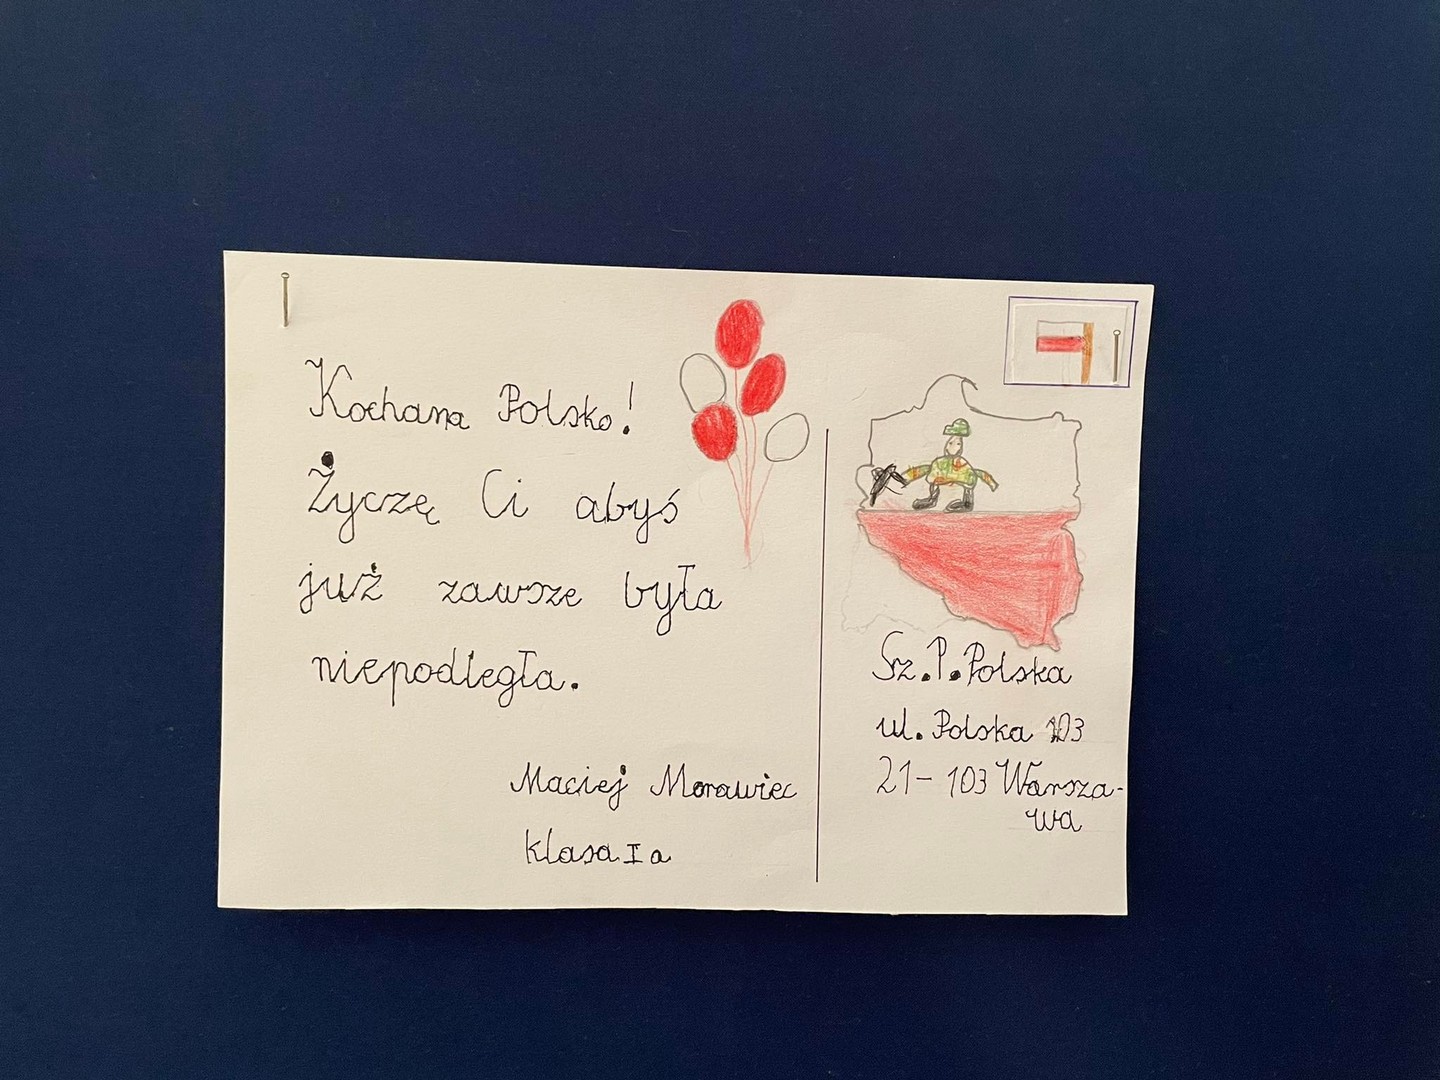 Kochana Polsko!
Życzę Ci abyś
już zawsze była
niepodległa.
Maciej Morawiec
klasa I a
Sz. P. Polska
ul. Polska 103
21-103 Warsza-
wa